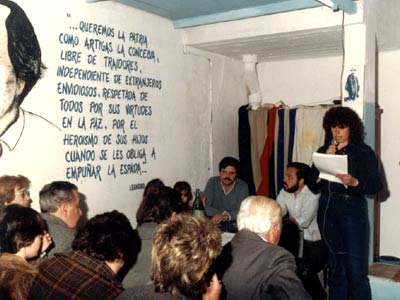 "...QUEREMOS LA PATRIA
COMO ARTIGAS LA CONCEBIA,
LIBRE DE TRAIDORES,
INDEPENDIENTE DE EXTRANJEROS
ENVIDIOSOS, RESPETADA DE
TODOS POR SUS VIRTUDES
EN LA PAZ, POR EL
HEROISMO DE SUS HIJOS
CUANDO SE LES OBLIGA A
EMPUÑAR LA ESPADA..."
LEANDRO